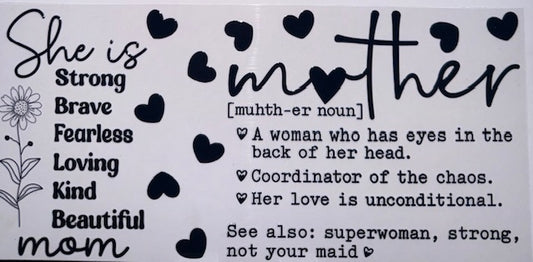 She is
Strong
Brave
Fearless
Loving
Kind
Beautiful
mom
mother
[muhth-er noun]
A woman who has eyes in the
back of her head.
Coordinator of the chaos.
Her love is unconditional.
See also: superwoman, strong,
not your maid